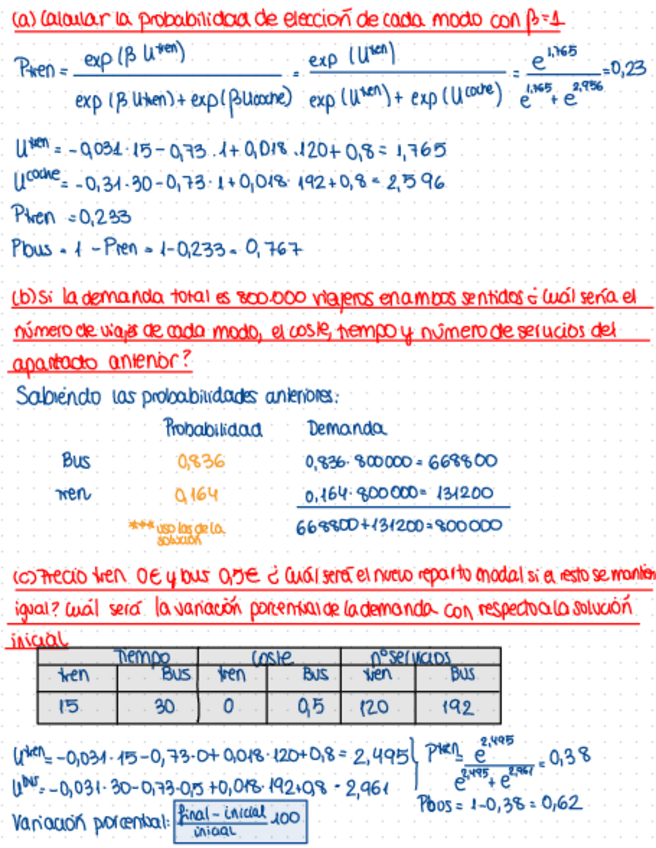 (a) Calcular la probabilidad de elección de cada modo con β=1
Ptren = exp (β U^tren) / exp (β Utren) + exp (β Ucoche) = exp (U^tren) / exp (U^tren) + exp (U^coche) = e^1,765 / e^1,765 + e^2,956 = 0,23
U^tren = -0,031 · 15 - 0,73 · 1 + 0,018 · 120 + 0,8 = 1,765
U^coche = -0,31 · 30 - 0,73 · 1 + 0,018 · 192 + 0,8 = 2,596
Ptren = 0,233
Pbus = 1 - Pren = 1 - 0,233 = 0,767
(b) Si la demanda total es 800.000 viajeros en ambos sentidos ¿ Cuál sería el
número de viajes de cada modo, el coste, tiempo y número de servicios del
apartado anterior?
Sabiendo las probabilidades anteriores:
Probabilidad Demanda
Bus 0,836 0,836 · 800000 = 668800
Tren 0,164 0,164 · 800000 = 131200
*** uso las de la 668800 + 131200 = 800000
solución
(c) Precio tren 0€ y bus 0,5€ ¿ Cuál será el nuevo reparto modal si el resto se mantien
igual? Cuál será la variación porcentual de la demanda con respecto a la solución
inicial
Tiempo Coste nº servicios
tren Bus tren Bus tren Bus
15 30 0 0,5 120 192
U^tren = -0,031 · 15 - 0,73 · 0 + 0,018 · 120 + 0,8 = 2,495 Ptren = e^2,495 / e^2,495 + e^2,961 = 0,38
U^bus = -0,031 · 30 - 0,73 · 0,5 + 0,018 · 192 + 0,8 = 2,961
Pbus = 1 - 0,38 = 0,62
Variación porcentual: final - inicial / inicial · 100